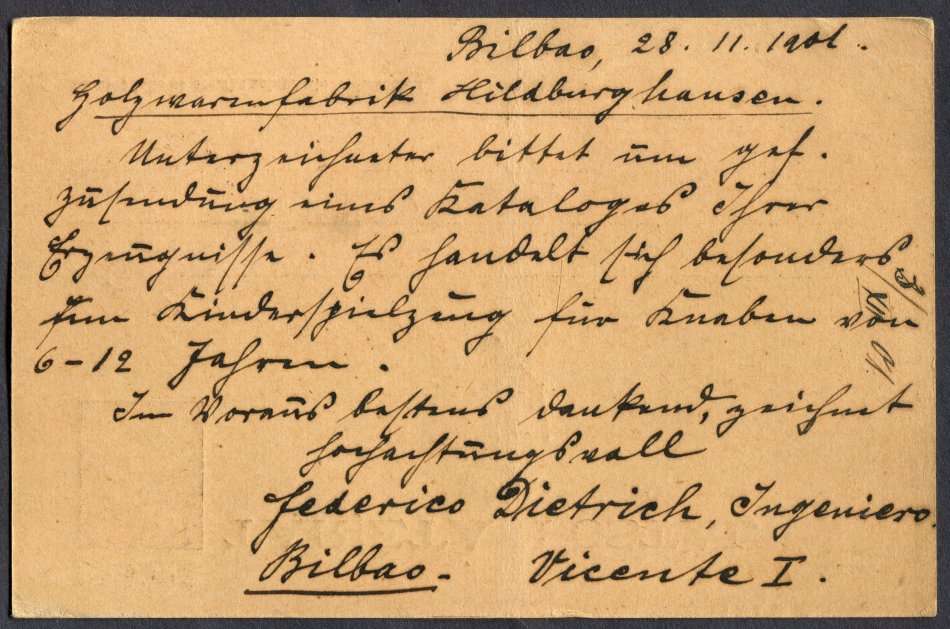 Bilbao, 28. 11. 1901.
Holzwarenfabrik Hildburghausen.
Unterzeichneter bittet um gef.
Zusendung eines Kataloges Ihrer
Erzeugnisse. Es handelt sich besonders
um Kinderspielzeug für Knaben von
6-12 Jahren.
Im Voraus bestens dankend, zeichnet
hochachtungsvoll
Federico Dietrich, Ingeniero.
Bilbao- Vicente I.